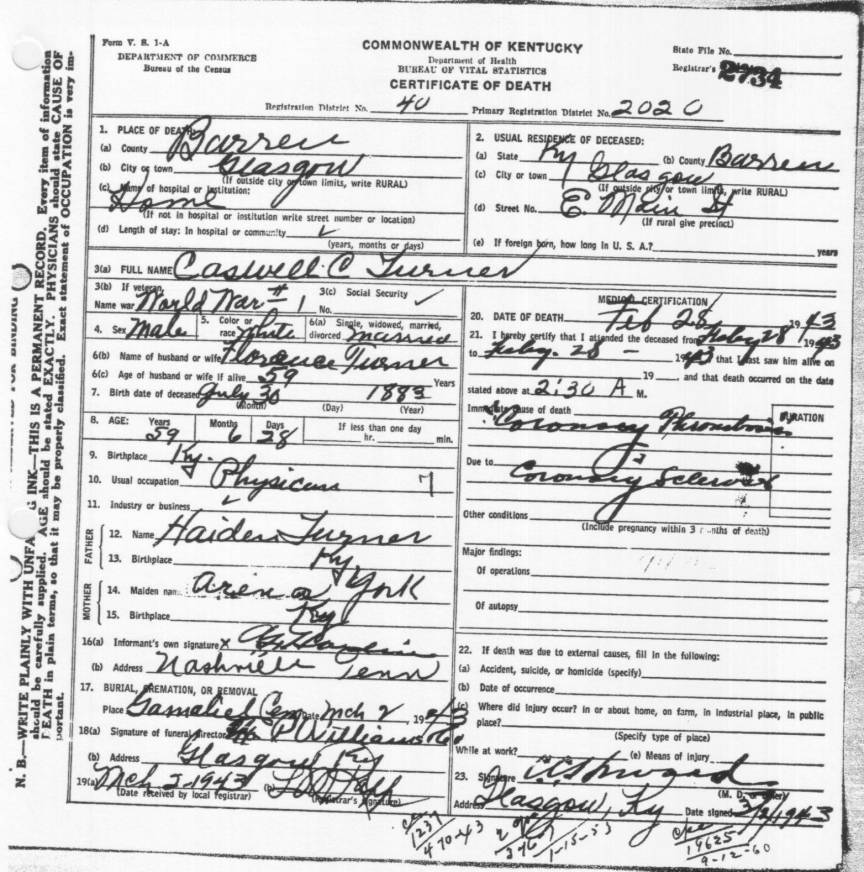 Form V. S. 1-A
DEPARTMENT OF COMMERCE
Bureau of the Census
COMMONWEALTH OF KENTUCKY
Department of Health
BUREAU OF VITAL STATISTICS
CERTIFICATE OF DEATH
State File No.
Registrar's 2734
Registration District No. 40 Primary Registration District No. 2020
1. PLACE OF DEATH
(a) County Barren
(b) City or town Glasgow
(If outside city or town limits, write RURAL)
(c) Name of hospital or institution:
Home
(If not in hospital or institution write street number or location)
(d) Length of stay: In hospital or community ✓
(years, months or days)
2. USUAL RESIDENCE OF DECEASED:
(a) State Ky (b) County Barren
(c) City or town Glasgow
(If outside city or town limits, write RURAL)
(d) Street No. E. Main St
(If rural give precinct)
(e) If foreign born, how long in U. S. A.? years
3(a) FULL NAME Caswell C Turner
3(b) If veteran,
Name war World War #1
3(c) Social Security
No. ✓
4. Sex Male 5. Color or race White 6(a) Single, widowed, married, divorced married
6(b) Name of husband or wife Florence Turner
6(c) Age of husband or wife if alive 59 Years
7. Birth date of deceased July 30 1883
(Month) (Day) (Year)
8. AGE: Years Months Days If less than one day
59 6 28 hr. min.
9. Birthplace Ky.
10. Usual occupation Physician 7
11. Industry or business ✓
FATHER
12. Name Haiden Turner
13. Birthplace Ky.
MOTHER
14. Maiden name York
15. Birthplace Ky
16(a) Informant's own signature X
(b) Address Nashville Tenn
17. BURIAL, CREMATION, OR REMOVAL
Place Gamaliel Cem Date Mch 2, 1943
18(a) Signature of funeral director P Williams
(b) Address Glasgow Ky
19(a) Mch 2 1943 (b)
(Date received by local registrar) (Registrar's signature)
MEDICAL CERTIFICATION
20. DATE OF DEATH Feb 28, 1943
21. I hereby certify that I attended the deceased from Feby 28 1943
to Feby. 28 - 1943 that I last saw him alive on
19 and that death occurred on the date
stated above at 2:30 A M.
Immediate cause of death DURATION
Coronary Thrombosis
Due to
Coronary Sclerosis
Other conditions
(Include pregnancy within 3 months of death)
Major findings:
Of operations
Of autopsy
22. If death was due to external causes, fill in the following:
(a) Accident, suicide, or homicide (specify)
(b) Date of occurrence
(c) Where did injury occur? In or about home, on farm, in industrial place, in public
place?
(Specify type of place)
While at work? (e) Means of injury
23. Signature
(M. D. or other)
Address Glasgow, Ky Date signed 3/2/1943
1237
4-70-43
1-15-53
19625
9-12-60
N. B.—WRITE PLAINLY WITH UNFADING INK—THIS IS A PERMANENT RECORD. Every item of information
should be carefully supplied. AGE should be stated EXACTLY. PHYSICIANS should state CAUSE OF
DEATH in plain terms, so that it may be properly classified. Exact statement of OCCUPATION is very im-
portant.
FOR BINDING